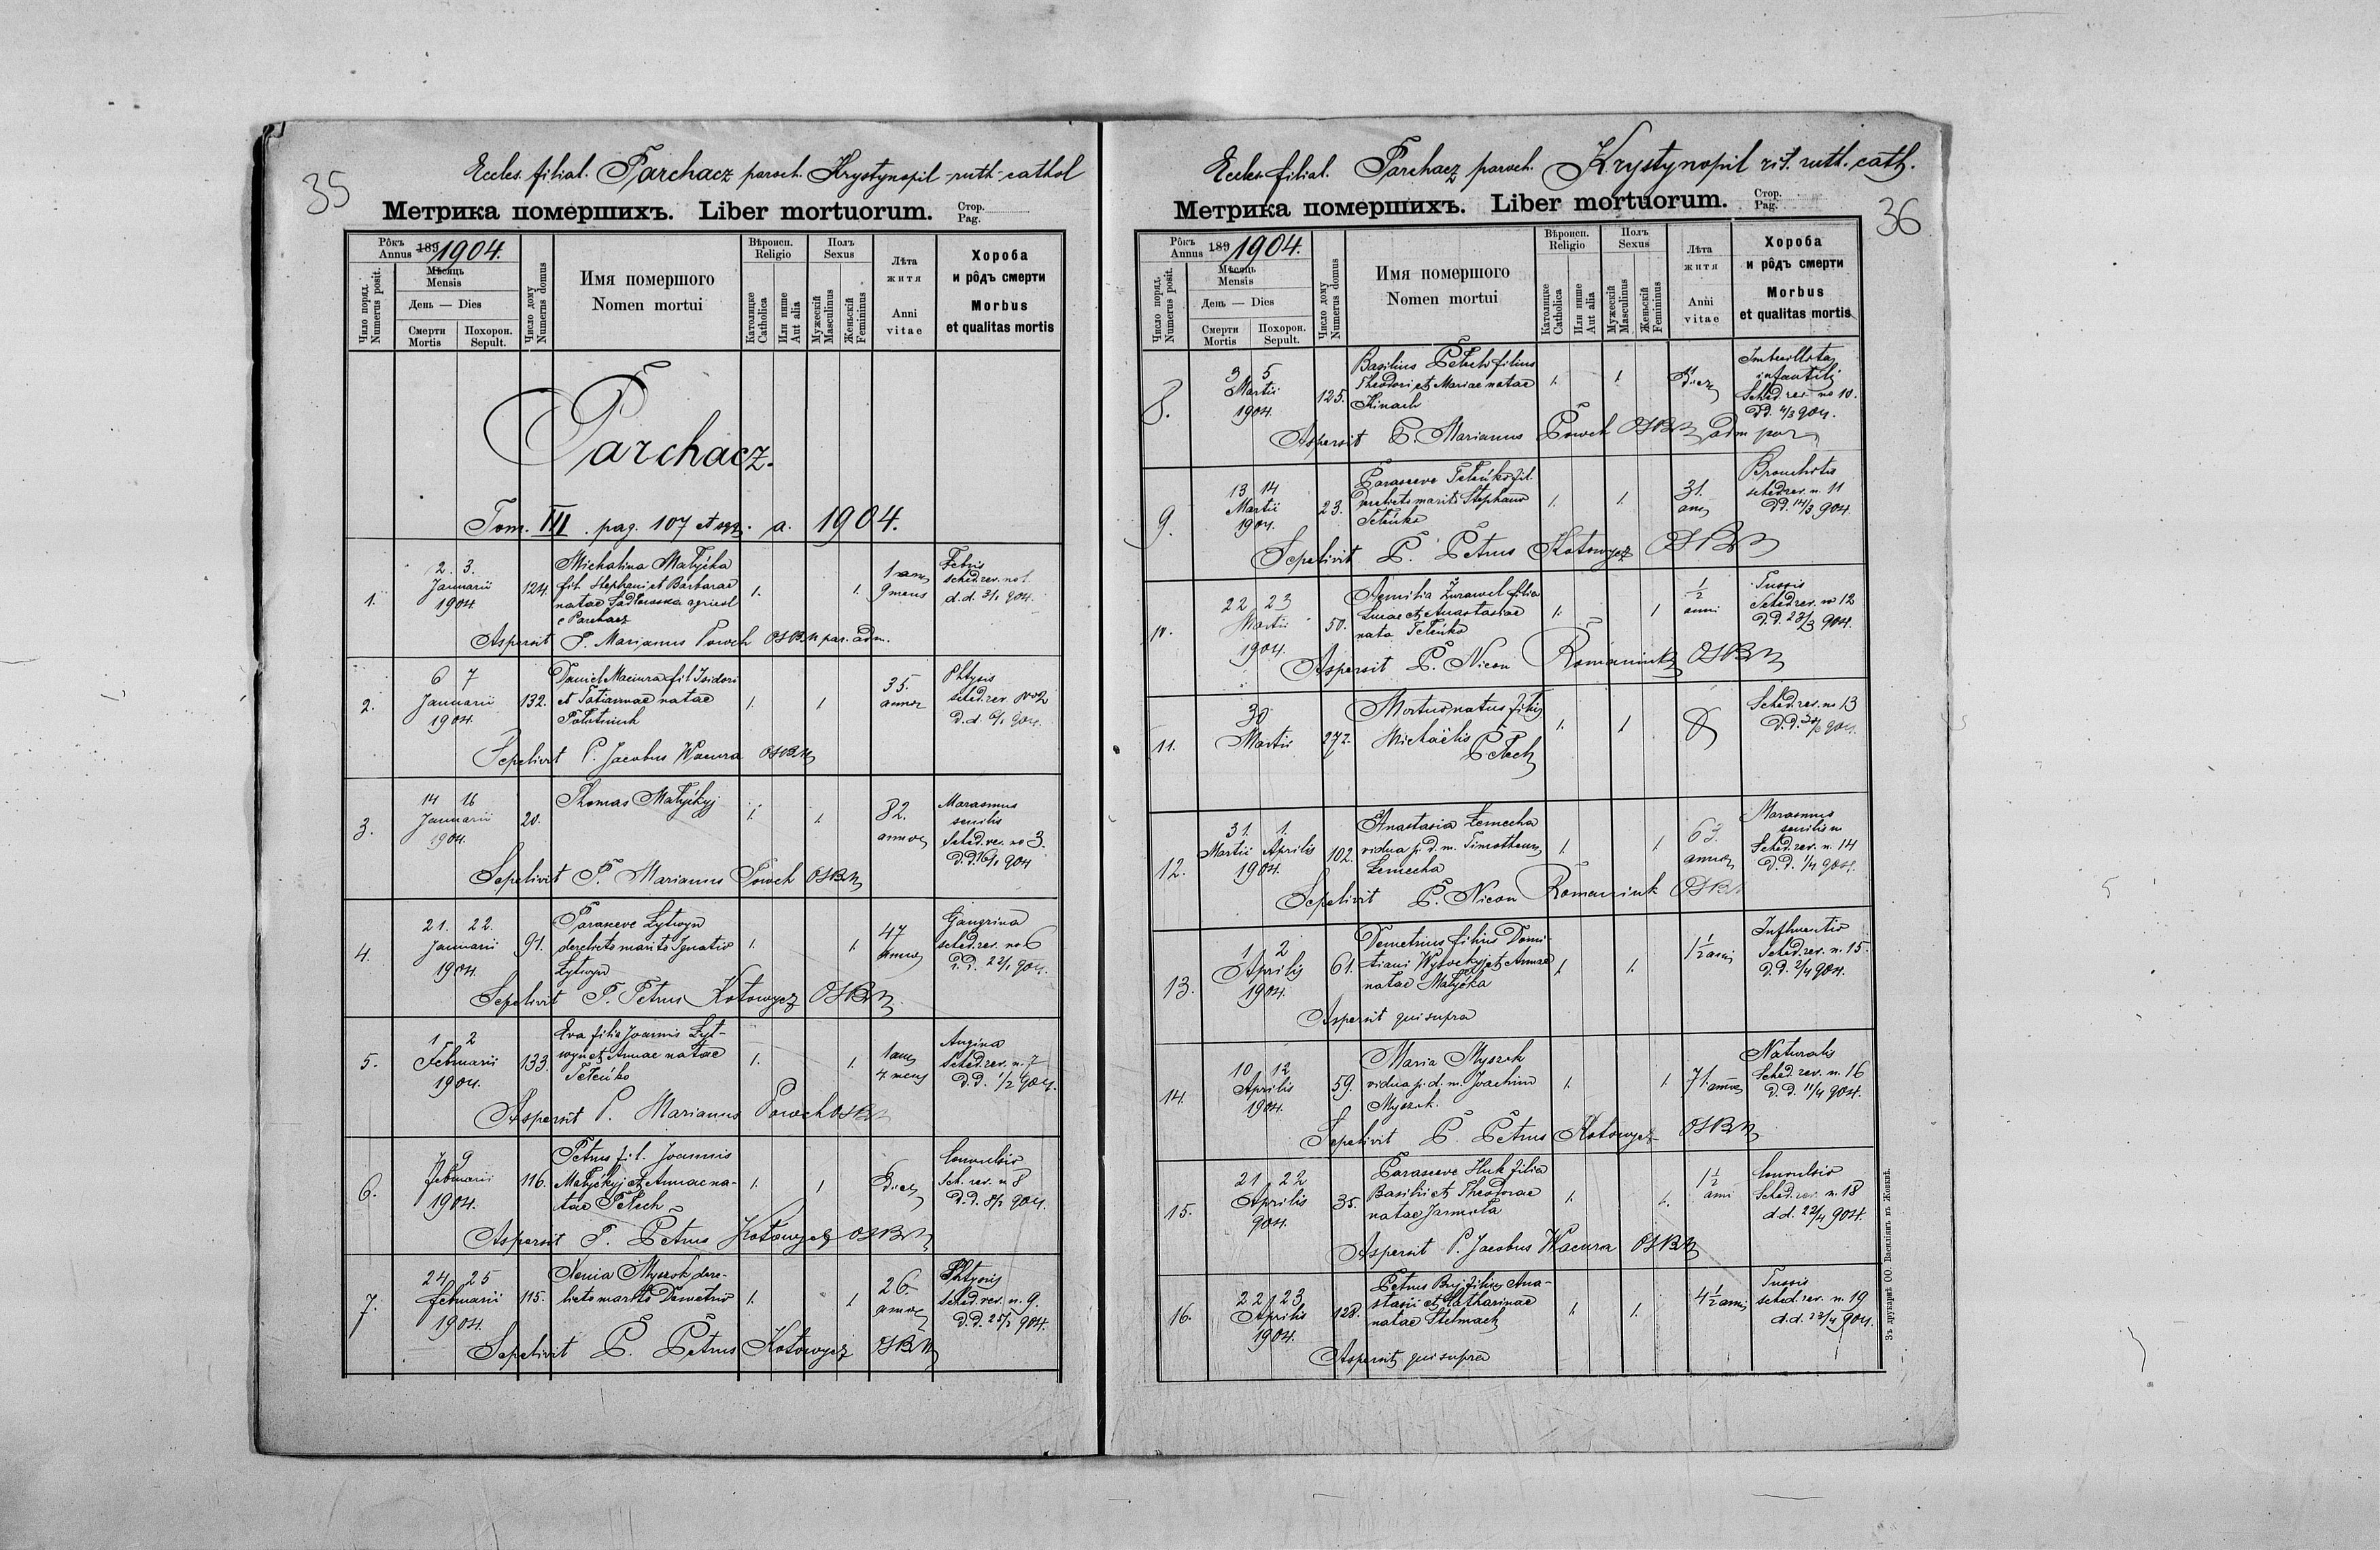 35
Eccles. filial. Parchacz paroch. Krystynopil -ruth-cathol
Метрика помершихъ. Liber mortuorum. Стор. Pag.
Рôкъ Annus 189 1904.
Мѣсяць Mensis
День — Dies
Число поряд. Numerus posit.
Смерти Mortis
Похорон. Sepult.
Число дому Numerus domus
Имя помершого
Nomen mortui
Вѣроисп. Religio
Католицке Catholica
Или инше Aut alia
Полъ Sexus
Мужескій Masculinus
Женьскій Femininus
Лѣта житя
Anni vitae
Хороба
и рôдъ смерти
Morbus
et qualitas mortis
Parchacz.
Tom. III. pag. 107 et sqq. a. 1904.
1. 2. 3. Januarii 1904. 124.
Michalina Matyćka
fil. Stephani et Barbarae
natae agricol
e Parchacz
1. 1. 9 mens
Febris
sched. rev. no 1.
d.d. 3/1 904.
Aspersit P. Marianus Powch OSBM par. adm.
2. 6 7 Januarii 1904. 132.
Daniel Maciura fil Isidori
et Tatiannae natae
1. 1 35. annor
Phtysis
sched. rev. No 2
d.d. 6/1 904.
Sepelivit P. Jacobus Wacura OSBM
3. 14 16 Januarii 1904. 20.
Thomas Matyćkyj
1. 1. 82. annor
Marasmus
senilis
Sched. rev. no 3.
d.d. 16/1 904
Sepelivit P. Marianus Powch OSBM
4. 21. 22. Januarii 1904 91.
Parasceve Łytwyn
derelicto marito Ignatio
Łytwyn
1. 1. 47 annor
Gangrina
sched. rev. no 6
d.d. 22/1 904.
Sepelivit P. Petrus Kotowycz OSBM.
5. 1 2 Februarii 1904. 133.
Eva filia Joannis Łyt-
wyn et Annae natae
Teteńko
1. 1. 1 ann 4 mens
Angina
Sched. rev. n. 7
d.d. 1/2 904.
Aspersit P. Marianus Powch OSBM
6. 7 9 Februarii 1904. 116.
Petrus fil. Joannis
Matyćkyj et Annae na-
tae Petech
1. 1 8 dies
Convulsio
Sch. rev. n 8
d.d. 8/2 904.
Aspersit P. Petrus Kotowycz OSBM
7. 24 25 Februarii 1904. 115.
Xenia Myszok dere-
licto marito Demetrio
1. 1 26 annor
Phtysis
Sched. rev. n. 9.
d.d. 25/2 904.
Sepelivit P. Petrus Kotowycz OSBM
Eccles. filial. Parchacz paroch. Krystynopil rit. ruth. cath.
36
Метрика помершихъ. Liber mortuorum. Стор. Pag.
Рôкъ Annus 189 1904.
Мѣсяць Mensis
День — Dies
Число поряд. Numerus posit.
Смерти Mortis
Похорон. Sepult.
Число дому Numerus domus
Имя помершого
Nomen mortui
Вѣроисп. Religio
Католицке Catholica
Или инше Aut alia
Полъ Sexus
Мужескій Masculinus
Женьскій Femininus
Лѣта житя
Anni vitae
Хороба
и рôдъ смерти
Morbus
et qualitas mortis
8. 3 5 Martii 1904. 125.
Basilius Petech filius
Theodori et Mariae natae
Kinach
1. 1.
Imbecillitas
infantilis
Sched. rev. no 10.
d.d. 4/3 904.
Aspersit P. Marianus Powch OSBM adm par
9. 13 14 Martii 1904. 23.
Parasceve Teteńko fil.
derelicto marito Stephano
Teteńko
1. 1. 31. ann
Bronchitis
sched. rev. n. 11
d.d. 14/3 904.
Sepelivit P. Petrus Kotowycz OSBM
10. 22 23 Martii 1904. 50.
Aemilia Żurawel filia
Lucae et Anastasiae
nata Teteńko
1. 1 1/2 anni
Tussis
Sched. rev. no 12
d.d. 23/3 904.
Aspersit P. Nicon Romaniuk OSBM
11. 30 Martii 272.
Mortuo natus filius
Michaëlis
Petech
1. 1
Sched. rev. no 13
d.d. 904
12. 31. 1. Martii Aprilis 1904. 102.
Anastasia Łemecha
vidua p. d. m. Timotheum
Łemecha
1. 1 63. annor
Marasmus
senilis
Sched. rev. n. 14
d.d. 1/4 904.
Sepelivit P. Nicon Romaniuk OSBM
13. 1 2 Aprilis 1904. 61.
Demetrius filius Domi-
tiani Wysockyj et Annae
natae Matyćka
1. 1. 1 1/2 anni
Sched. rev. n. 15.
d.d. 2/4 904.
Aspersit qui supra
14. 10 12 Aprilis 1904. 59.
Maria Myszok
vidua p. d. m. Joachim
Myszok.
1. 1. 71. annor
Naturalis
Sched. rev. n. 16
d.d. 11/4 904.
Sepelivit P. Petrus Kotowycz OSBM
15. 21 22 Aprilis 904. 35.
Parasceve Huk filia
Basilii et Theodorae
natae Jarmoła
1. 1. 1 1/2 anni
Convulsio
Sched. rev. n. 18
d.d. 22/4 904.
Aspersit P. Jacobus Wacura OSBM
16. 22 23 Aprilis 1904. 128.
Petrus Buj filius Ana-
stasii et Catharinae
natae Stelmach
1. 1. 4 1/2 anni
Tussis
sched. rev. n. 19
d.d. 23/4 904.
Aspersit qui supra
Зъ друкарнѣ ОО. Василіянъ въ Жовквѣ.